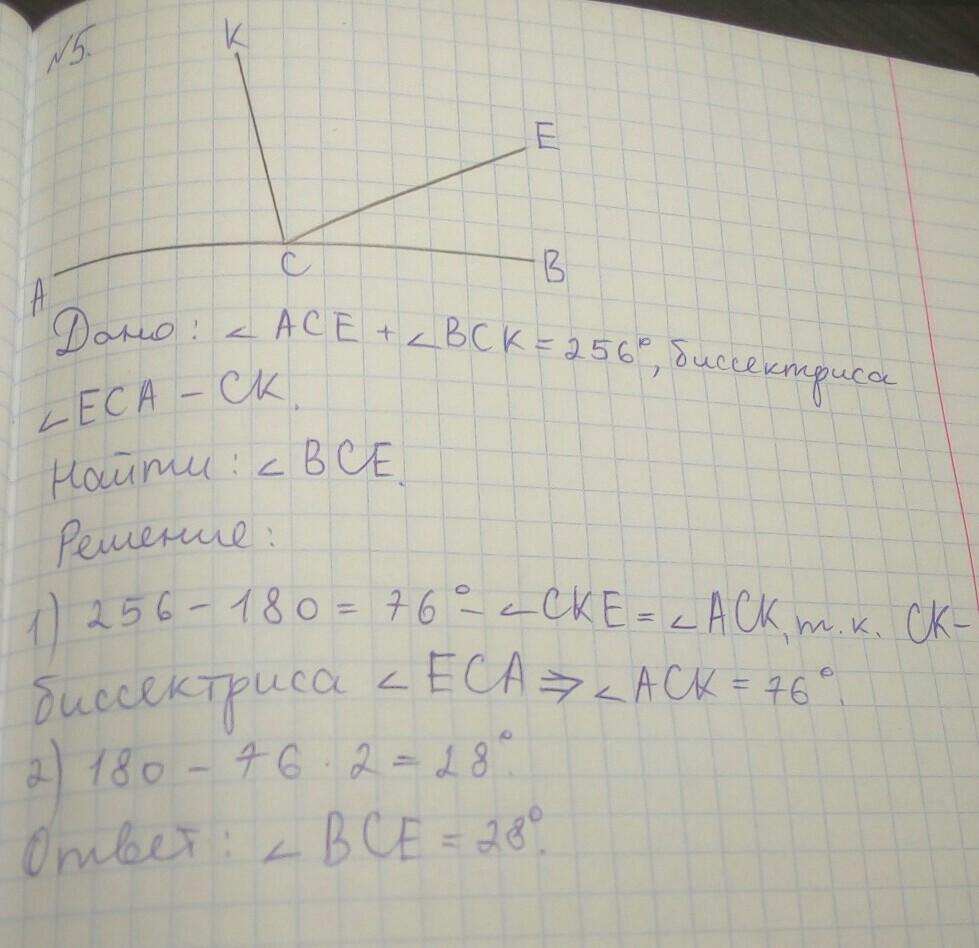 №5.
K
E
C
B
A
Дано: ∠ACE + ∠BCK = 256°, биссектриса
∠ECA - CK.
Найти: ∠BCE.
Решение:
1) 256 - 180 = 76° - ∠CKE = ∠ACK, т.к. CK-
биссектриса ∠ECA ⇒ ∠ACK = 76°.
2) 180 - 76 · 2 = 28°.
Ответ: ∠BCE = 28°.